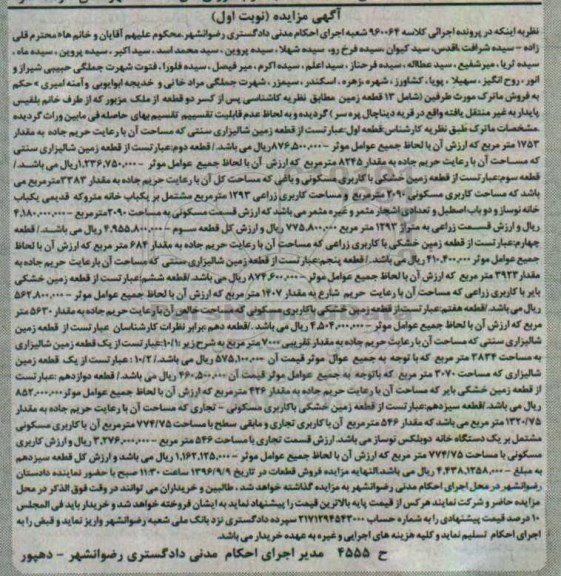 آگهی مزایده (نوبت اول)
نظریه اینکه در پرونده اجرائی کلاسه ۹۶۰۰۶۴ شعبه اجرای احکام مدنی دادگستری رضوانشهر محکوم علیهم آقایان و خانم ها محترم قلی
زاده – سیده شرافت اقدس، سید کیوان، سیده فرخ رو، سیده شهلا، سیده پروین، سید محمد اسد، سید اکبر، سیده پروین، سیده ماه،
سیده ثریا، میرشفیع، سید عطااله، سیده فرحناز، سید اعلم، سیده اکرم، میر فیصل، سیده فلورا، فتوت شهرت جملگی حبیبی شیراز و
انور، روح انگیز، سهیلا، پویا، کشاورز، شهره، زهره، اسکندر، سیمزر، شهرت جملگی مراد خانی و خدیجه ابوایوبی و آمنه امیری » حکم
به فروش ماترک مورث طرفین (شامل ۱۳ قطعه زمین مطابق نظریه کاشناسی پس از کسر دو قطعه از ملک مزبور که از طرف خانم بلقیس
پایدار به غیر منتقل یافته واقع در قریه دیناچال پره سر) گردیده و به لحاظ عدم قابلیت تقسیم تقسیم بهای حاصله فی مابین وراث گردیده
مشخصات ماترک طبق نظریه کارشناس: قطعه اول: عبارتست از قطعه زمین شالیزاری سنتی که مساحت آن با رعایت حریم جاده به مقدار
۱۷۵۳ متر مربع که ارزش آن با لحاظ جمیع عوامل موثر – ۸۷۶.۵۰۰.۰۰۰ ریال می باشد./ قطعه دوم: عبارتست از قطعه زمین شالیزاری سنتی
که مساحت آن با رعایت حریم جاده به مقدار ۸۲۴۵ مترمربع که ارزش آن با لحاظ جمیع عوامل موثر – ۱.۲۳۶.۷۵۰.۰۰۰ ریال می باشد./
قطعه سوم: عبارتست از قطعه زمین خشکی با کاربری مسکونی و باغی که مساحت کل آن با رعایت حریم جاده به مقدار ۳۳۸۳ مترمربع می
باشد که مساحت کاربری مسکونی ۲۰۹۰ مترمربع و مساحت کاربری زراعی ۱۲۹۳ مترمربع مشتمل بر یکباب خانه متروکه قدیمی یکباب
خانه نوساز و دو باب اصطبل و تعدادی اشجار مثمر و غیره مثمر می باشد که ارزش قسمت مسکونی به مساحت ۲۰۹۰ مترمربع – ۴.۱۸۰.۰۰۰.۰۰۰
ریال و ارزش قسمت زراعی به متراژ ۱۲۹۳ متر مربع ۷۷۵.۸۰۰.۰۰۰ ریال و ارزش کل قطعه سوم – ۴.۹۵۵.۸۰۰.۰۰۰ ریال می باشد./ قطعه
چهارم: عبارتست از قطعه زمین خشکی با کاربری زراعی که مساحت آن با رعایت حریم جاده به مقدار ۶۸۴ متر مربع که ارزش آن با لحاظ
جمیع عوامل موثر ۴۱۰.۴۰۰.۰۰۰ ریال می باشد./ قطعه پنجم: عبارتست از قطعه زمین شالیزاری سنتی که مساحت آن بارعایت حریم جاده به
مقدار ۳۹۲۳ متر مربع که ارزش آن با لحاظ جمیع عوامل موثر – ۸۷۴.۶۰۰.۰۰۰ ریال می باشد/ قطعه ششم: عبارتست از قطعه زمین خشکی
بایر با کاربری زراعی که مساحت آن با رعایت حریم شارع به مقدار ۱۴۰۷ متر مربع که ارزش آن با لحاظ جمیع عوامل موثر – ۵۶۲.۸۰۰.۰۰۰
ریال می باشد/ قطعه هفتم: عبارتست از قطعه زمین خشکی با کاربری مسکونی که مساحت خالص آن با رعایت حریم جاده به مقدار ۵۶۳۰ متر
مربع که ارزش آن با لحاظ جمیع عوامل موثر – ۴.۵۰۴.۰۰۰.۰۰۰ ریال می باشد./ قطعه دهم: برابر نظرات کارشناسان عبارتست از قطعه زمین
شالیزاری سنتی که مساحت آن با رعایت حریم جاده به مقدار تقریبی ۷۰۰۰ متر مربع به شرح زیر: ۱۰/۱: عبارتست از یک قطعه زمین شالیزاری
به مساحت ۳۸۳۴ متر مربع که با توجه به جمیع عوامل موثر قیمت آن ۵۷۵.۱۰۰.۰۰۰ ریال می باشد./ ۱۰/۲: عبارتست از یک قطعه زمین
شالیزاری که مساحت ۳۰۷۰ متر مربع که باتوجه به جمیع عوامل موثر قیمت آن ۴۶۰.۵۰۰.۰۰۰ ریال می باشد./ قطعه دوازدهم: عبارتست
از قطعه زمین خشکی بایر که مساحت آن با رعایت حریم جاده به مقدار ۴۲۶ مترمربع که ارزش آن با لحاظ جمیع عوامل موثر ۸۵۲.۰۰۰.۰۰۰
ریال می باشد./ قطعه سیزدهم: عبارتست از قطعه زمین خشکی با کاربری مسکونی – تجاری که مساحت آن با رعایت حریم جاده به مقدار
۱۳۲۰/۷۵ متر مربع می باشد که مقدار ۵۴۶ متر مربع آن با کاربری تجاری و مابقی سطح با مساحت ۷۷۴/۷۵ مترمربع آن با کاربری مسکونی
مشتمل بر یک دستگاه خانه دوبلکس نوساز می باشد. ارزش قسمت تجاری با مساحت ۵۴۶ متر مربع – ۳.۲۷۶.۰۰۰.۰۰۰ ریال و ارزش کاربری
مسکونی با مساحت ۷۷۴/۷۵ متر مربع که ارزش آن با لحاظ جمیع عوامل موثر – ۱.۱۶۲.۱۲۵.۰۰۰ ریال می باشد و ارزش کل قطعه سیزدهم
به مبلغ – ۴.۴۳۸.۱۲۵۸.۰۰۰ ریال می باشد النهایه مزایده فروش قطعات در تاریخ ۱۳۹۶/۹/۹ ساعت ۱۱:۳۰ صبح با حضور نماینده دادستان
رضوانشهر در محل اجرای احکام مدنی رضوانشهر به مزایده گذاشته خواهد شد، طالبین و خریداران می توانند در وقت فوق الذکر در محل
مزایده حاضر و شرکت نمایند هر کس از قیمت پایه بالاترین قیمت را پیشنهاد نماید به ایشان فروخته خواهد شد و خریدار باید فی المجلس
۱۰ درصد قیمت پیشنهادی را به شماره حساب ۲۱۷۱۲۹۴۵۴۳۰۰۰ سپرده دادگستری نزد بانک ملی شعبه رضوانشهر واریز نماید و قبض را به
اجرای احکام تسلیم نماید و کلیه هزینه های اجرایی و غیره به عهده خریدار می باشد.
ح ۴۵۵۵ مدیر اجرای احکام مدنی دادگستری رضوانشهر – دهپور